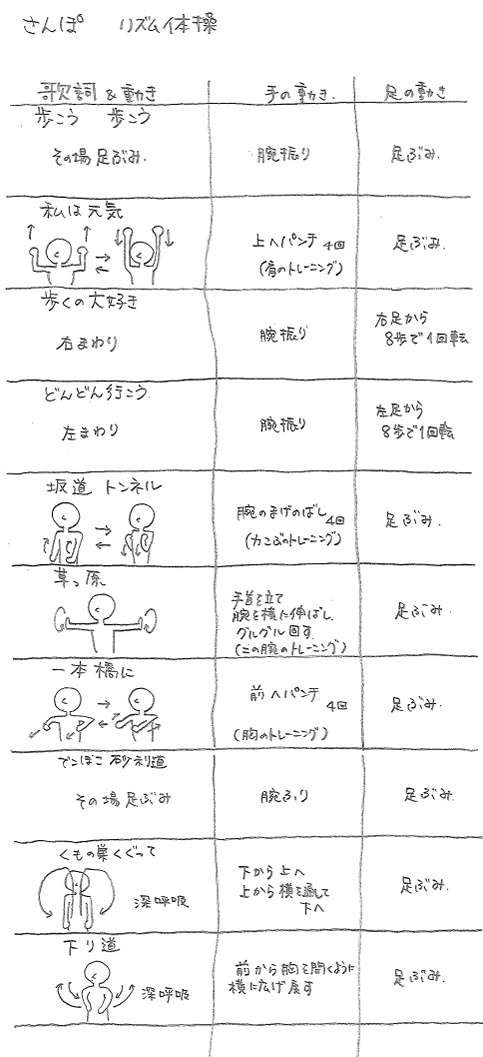 さんぽ リズム体操
歌詞 & 動き 手の動き 足の動き
歩こう 歩こう
その場足ぶみ. 腕振り 足ぶみ.
私は元気
上へパンチ 4回 足ぶみ.
(肩のトレーニング)
歩くの大好き
右まわり 腕振り 右足から
8歩で1回転
どんどん行こう
左まわり 腕振り 左足から
8歩で1回転
坂道 トンネル
腕のまげのばし 4回 足ぶみ.
(力こぶのトレーニング)
草っ原
手首を立て
腕を横に伸ばし 足ぶみ.
グルグル回す.
(二の腕のトレーニング)
一本橋に
前へパンチ 4回 足ぶみ.
(胸のトレーニング)
でこぼこ砂利道
その場足ぶみ 腕ふり 足ぶみ.
くもの巣くぐって
深呼吸 下から上へ 足ぶみ.
上から横を通して
下へ
下り道
深呼吸 前から胸を開くように 足ぶみ.
横に広げ戻す